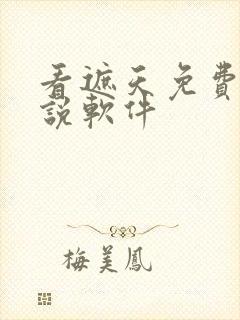 看遮天免費
說軟件
梅美鳳